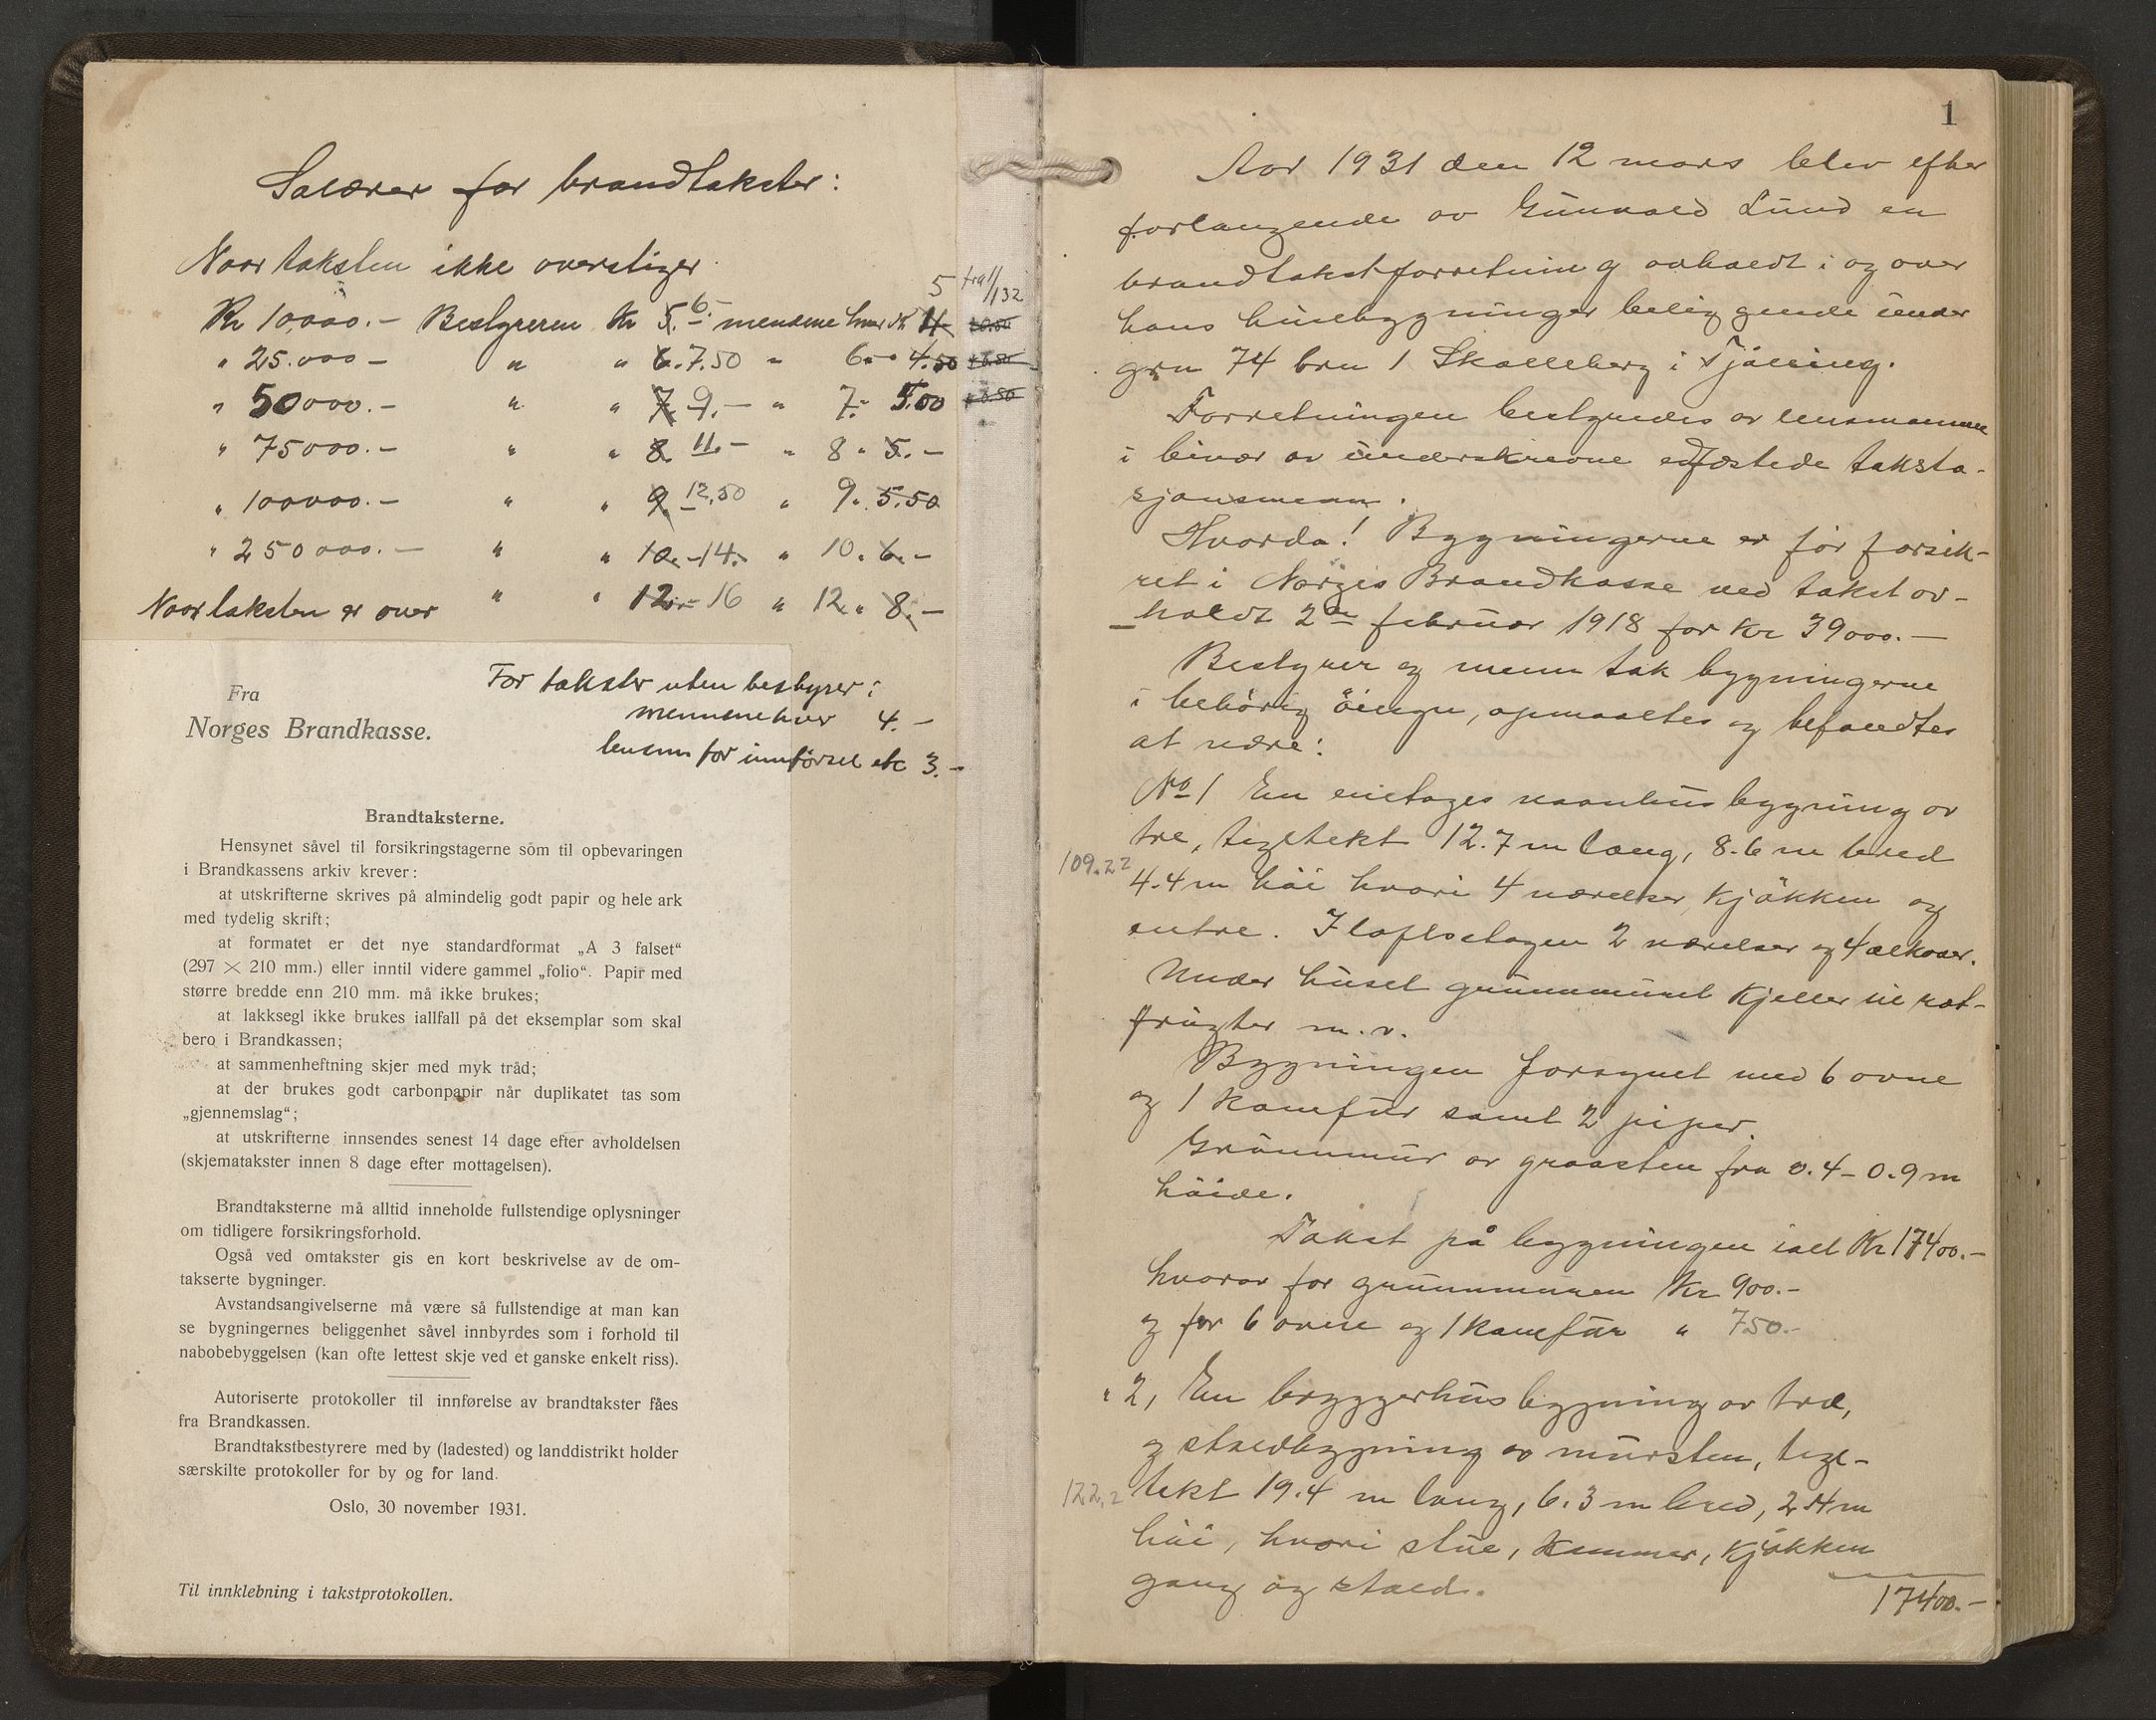 Salærer for brandtakster:
Naar taksten ikke overstiger
5 fra 1/1 32
Kr 10,000.- Bestyreren Kr 5.- 6.- mendene hver Kr 4.-
" 25.000 - " " 6. 7.50 " 6.- 4.50
" 50000.- " " 7. 9.- " 7.- 5.00
" 75000.- " " 8. 11.- " 8 " 5.-
" 100000.- " " 9. 12.50 " 9. 5.50
" 250000.- " " 10.- 14.- " 10. 6.-
Naar taksten er over " " 12.- 16 " 12. 8.-
For takster uten bestyrer:
mennene hver 4.-
lensm for innførsel etc 3.-
Fra
Norges Brandkasse.
Brandtaksterne.
Hensynet såvel til forsikringstagerne som til opbevaringen
i Brandkassens arkiv krever:
at utskrifterne skrives på almindelig godt papir og hele ark
med tydelig skrift;
at formatet er det nye standardformat „A 3 falset“
(297 × 210 mm.) eller inntil videre gammel „folio“. Papir med
større bredde enn 210 mm. må ikke brukes;
at lakksegl ikke brukes iallfall på det eksemplar som skal
bero i Brandkassen;
at sammenheftning skjer med myk tråd;
at der brukes godt carbonpapir når duplikatet tas som
„gjennemslag“;
at utskrifterne innsendes senest 14 dage efter avholdelsen
(skjematakster innen 8 dage efter mottagelsen).
Brandtaksterne må alltid inneholde fullstendige oplysninger
om tidligere forsikringsforhold.
Også ved omtakster gis en kort beskrivelse av de om-
takserte bygninger.
Avstandsangivelserne må være så fullstendige at man kan
se bygningernes beliggenhet såvel innbyrdes som i forhold til
nabobebyggelsen (kan ofte lettest skje ved et ganske enkelt riss).
Autoriserte protokoller til innførelse av brandtakster fåes
fra Brandkassen.
Brandtakstbestyrere med by (ladested) og landdistrikt holder
særskilte protokoller for by og for land.
Oslo, 30 november 1931.
Til innklebning i takstprotokollen.
1
Aar 1931 den 12 mars blev efter
forlangende av Gunvald Lund en
brandtakstforretning avholdt i og over
hans husebygninger beliggende under
grn 74 brn 1 Skalleberg i Tjølling.
Forretningen bestyredes av lensmannen
i leiver av underskrevne edfæstede taksta-
sjonsmenn.
Hvorda! Bygningerne er før forsik-
ret i Norges Brandkasse ved takst av-
holdt 2en februar 1918 for Kr 39000.-
Bestyrer og menn tok bygningerne
i behørig øiesyn, opmaaltes og befandtes
at være:
No 1 En enetages vaanhusbygning av
tre, tegltekt 12.7 m lang, 8.6 m bred
109.22
4.4 m høi hvori 4 værelser, kjøkken og
entre. I loftsetagen 2 værelser og 4 alkover.
Under huset grunnmuret kjeller til rot-
frugter m. v.
Bygningen forsynet med 6 ovne
og 1 komfur samt 2 piper.
Grunnmur av graasten fra 0.4 - 0.9 m
høide.
Takst på bygningen ialt Kr 17400.-
hvorav for grunnmuren Kr 900.-
og for 6 ovne og 1 komfur " 750.-
" 2, En bryggerhusbygning av træ,
og staldbygning av mursten, tegl-
122,2
tekt 19.4 m lang, 6.3 m bred, 2.4 m
høi, hvori stue, kammer, kjøkken
gang og stald.
17400.-